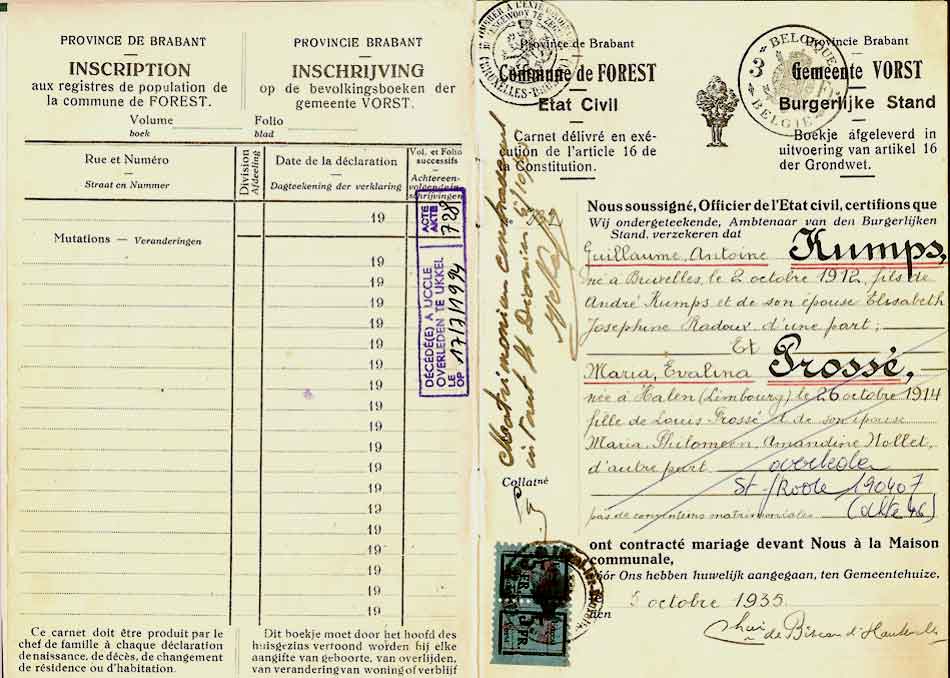 PROVINCE DE BRABANT
INSCRIPTION
aux registres de population de
la commune de FOREST.
PROVINCIE BRABANT
INSCHRIJVING
op de bevolkingsboeken der
gemeente VORST.
Volume
boek
Folio
blad
Rue et Numéro
Straat en Nummer
Division
Afdeeling
Date de la déclaration
Dagteekening der verklaring
Vol. et Folio
successifs
Achtereen-
volgende in-
schrijvingen
19
Mutations — Veranderingen
19
19
19
19
19
19
19
19
19
19
19
19
19
ACTE
AKTE
728
DÉCÉDÉ(E) A UCCLE
OVERLEDEN TE UKKEL
LE
OP
17/7/1994
Ce carnet doit être produit par le
chef de famille à chaque déclaration
de naissance, de décès, de changement
de résidence ou d'habitation.
Dit boekje moet door het hoofd des
huisgezins vertoond worden bij elke
aangifte van geboorte, van overlijden,
van verandering van woning of verblijf
Province de Brabant
Commune de FOREST
Etat Civil
Carnet délivré en exé-
cution de l'article 16 de
la Constitution.
BELGIQUE
3 F
BELGIE
Provincie Brabant
Gemeente VORST
Burgerlijke Stand
Boekje afgeleverd in
uitvoering van artikel 16
der Grondwet.
Matrimonium
Collatné
Nous soussigné, Officier de l'Etat civil, certifions que
Wij ondergeteekende, Ambtenaar van den Burgerlijken
Stand, verzekeren dat
Guillaume, Antoine Kumps,
né à Bruxelles, le 2 octobre 1912, fils de
André Kumps et de son épouse Elisabeth
Josephine Radoux, d'une part;
Et
Maria, Evalina Prossé,
née à Halen (Limbourg) le 26 octobre 1914
fille de Louis Prossé et de son épouse
Maria, Philomeen, Amandine Hollet,
d'autre part.
190407
pas de conventions matrimoniales
ont contracté mariage devant Nous à la Maison
communale,
vóór Ons hebben huwelijk aangegaan, ten Gemeentehuize.
den
5 octobre 1935.